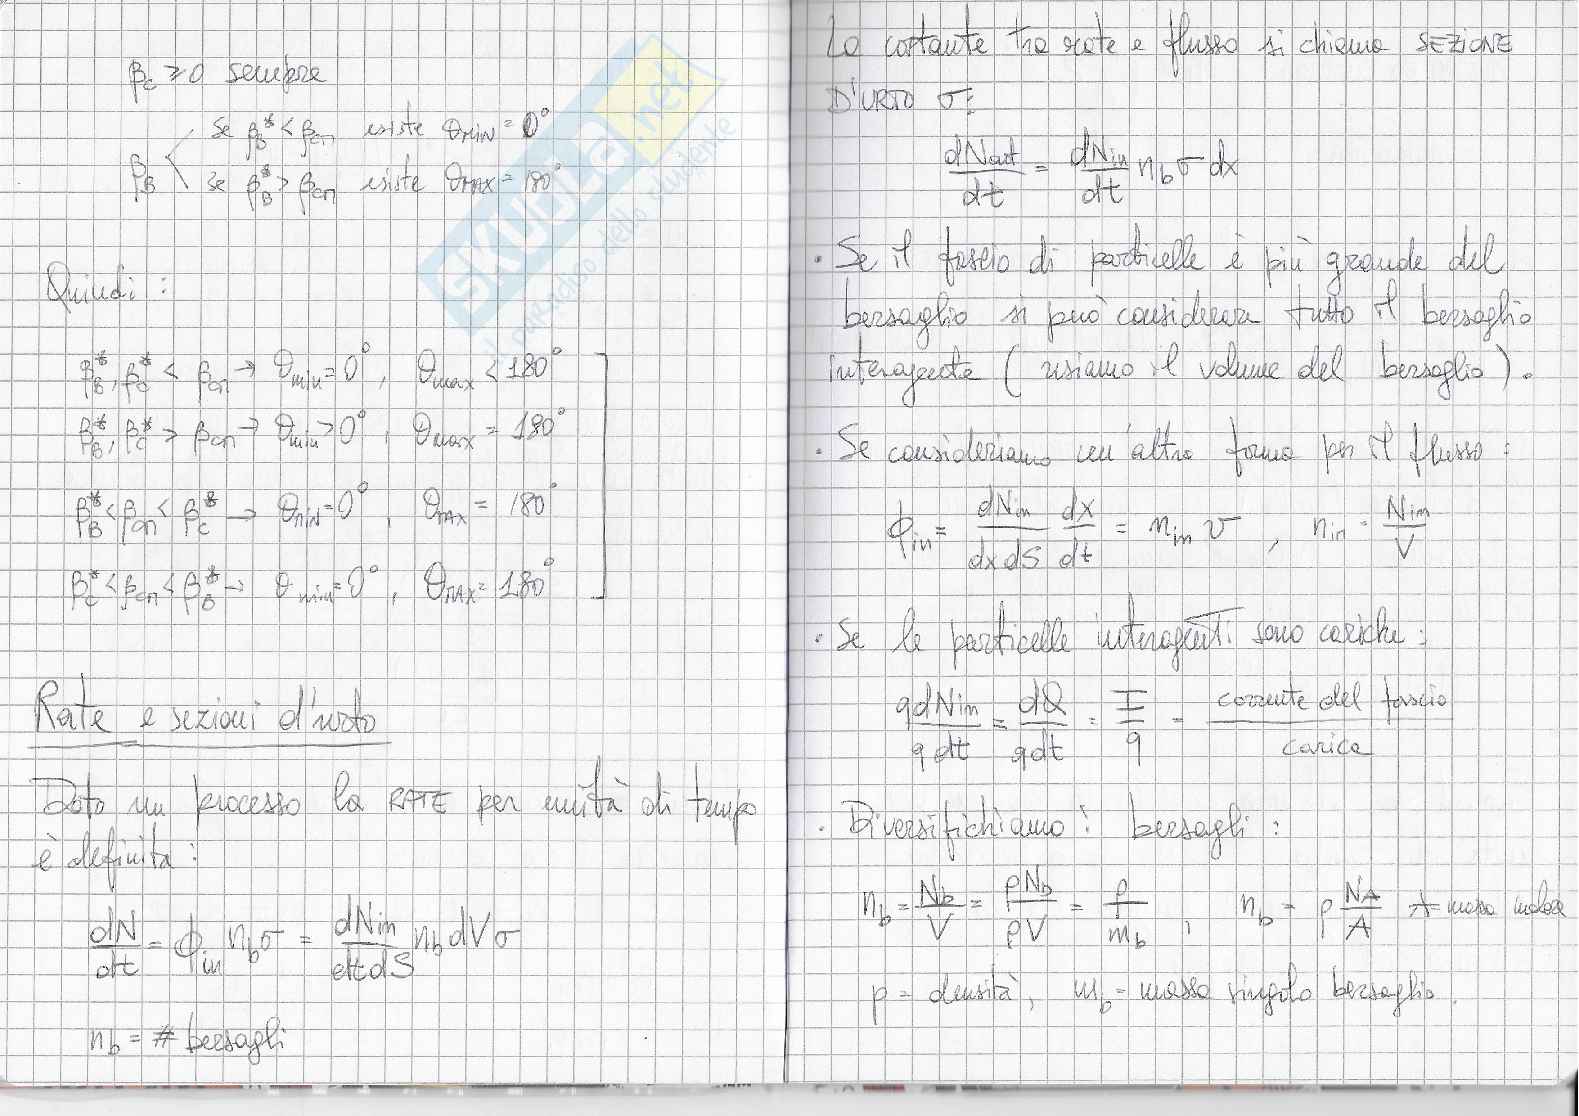 β_C ≥ 0 sempre
β_B
se β_B^* < β_CM esiste θ_MIN = 0°
se β_B^* > β_CM esiste θ_MAX = 180°
Quindi :
β_B^*, β_C^* < β_CM → θ_min = 0° , θ_max < 180°
β_B^*, β_C^* > β_CM → θ_min > 0° , θ_max = 180°
β_B^* < β_CM < β_C^* → θ_MIN = 0° , θ_MAX = 180°
β_C^* < β_CM < β_B^* → θ_min = 0° , θ_MAX = 180°
Rate e sezioni d'urto
Dato un processo la RATE per unità di tempo
è definita :
dN/dt = ϕ_in n_b σ = dN_in/dtdS n_b dV σ
n_b = # bersagli
La costante tra rate e flusso si chiama SEZIONE
D'URTO σ :
dN_out/dt = dN_in/dt n_b σ dx
· Se il fascio di particelle è più grande del
bersaglio si può considerare tutto il bersaglio
interagente ( usiamo il volume del bersaglio ) .
· Se consideriamo un'altra forma per il flusso :
ϕ_in = dN_in/dxdS dx/dt = n_in v , n_in = N_in/V
· Se le particelle interagenti sono cariche :
qdN_in/qdt = dQ/qdt = I/q = corrente del fascio/carica
· Diversifichiamo i bersagli :
n_b = N_b/V = ρN_b/ρV = ρ/m_b , n_b = ρ N_A/A A = massa molare
ρ = densità, m_b = massa singolo bersaglio .
SKUOLA.net
il paradiso dello studente